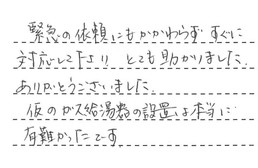 緊急の依頼にもかかわらず すぐに
対応して下さり とても助かりました。
ありがとうございました。
仮のガス給湯器の設置は本当に
有難かったです。